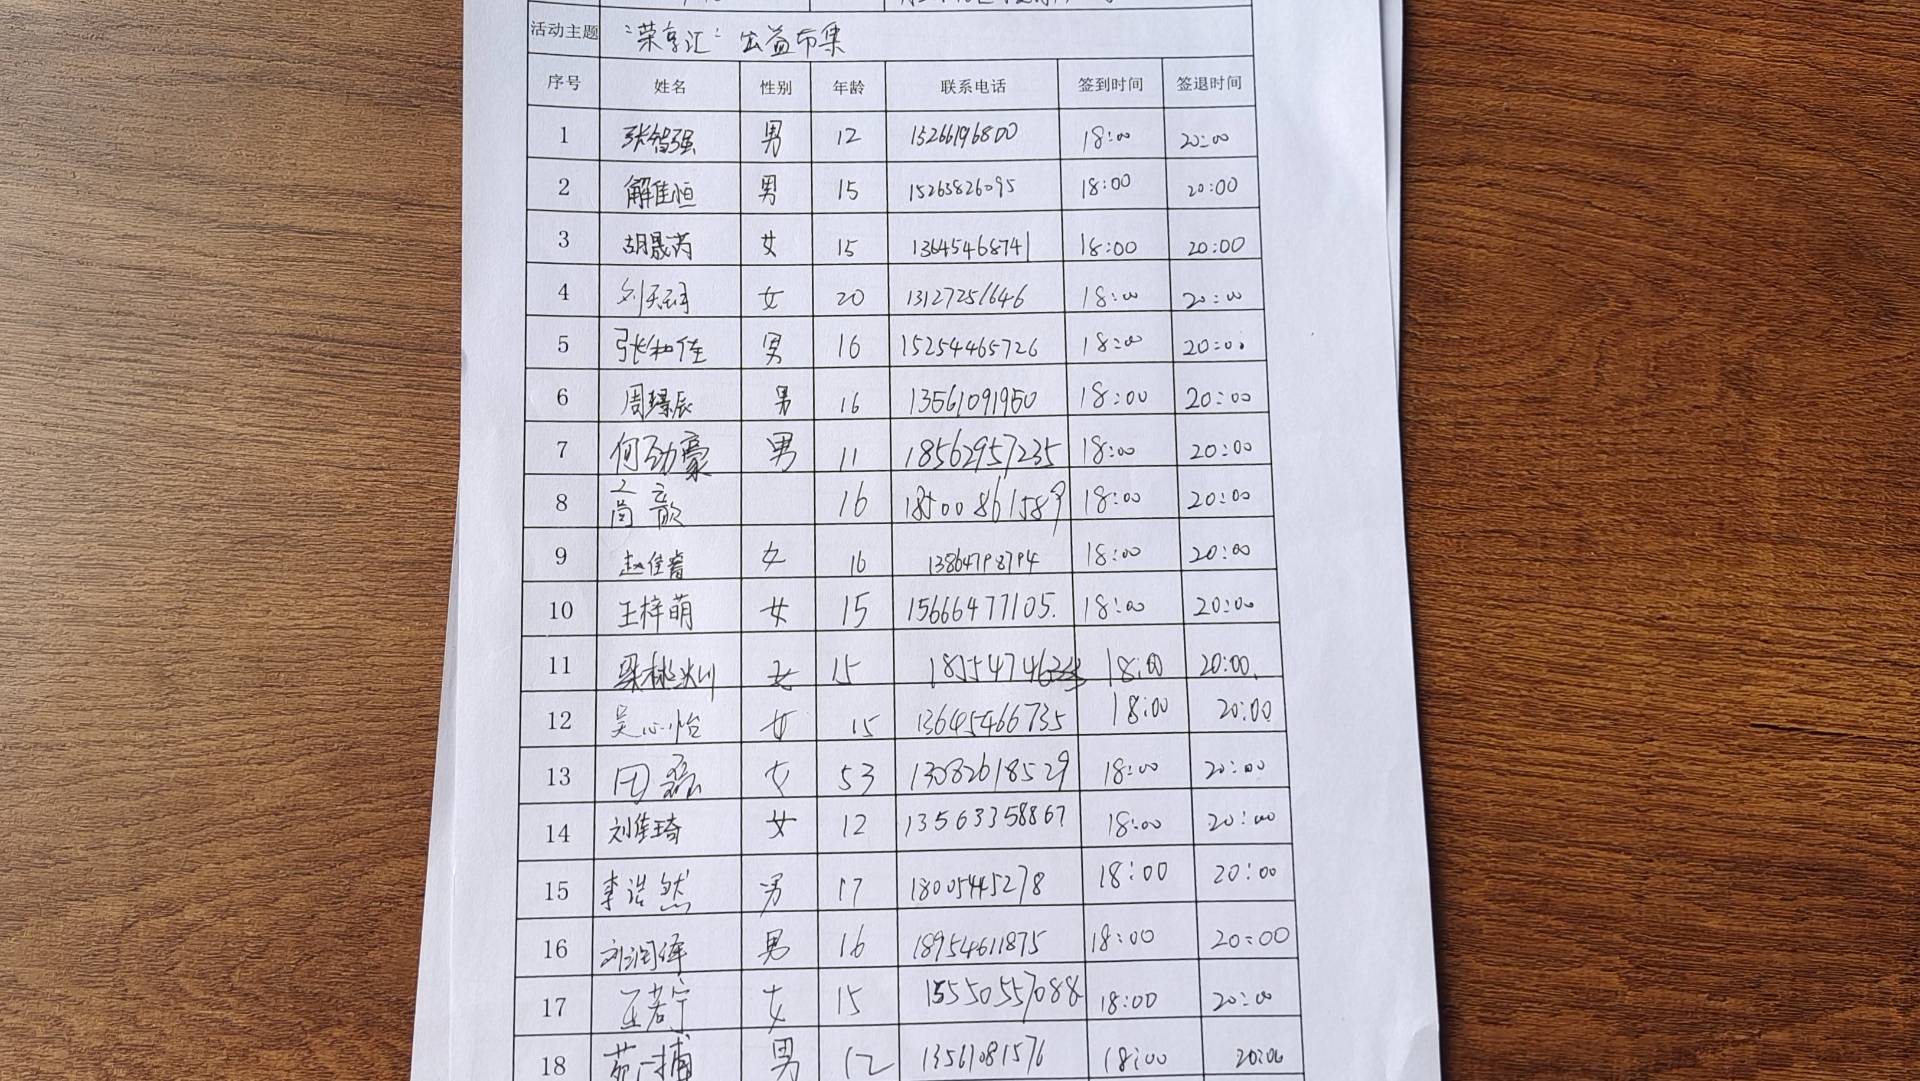 活动主题 “荣享汇” 公益市集
序号 姓名 性别 年龄 联系电话 签到时间 签退时间
1 张智强 男 12 15266196800 18:00 20:00
2 解佳恒 男 15 15263826095 18:00 20:00
3 胡晟芮 女 15 13645468741 18:00 20:00
4 刘天词 女 20 13127251646 18:00 20:00
5 张和佳 男 16 15254465726 18:00 20:00
6 周璟辰 男 16 13561091950 18:00 20:00
7 何劲豪 男 11 18562957235 18:00 20:00
8 16 18500861589 18:00 20:00
9 赵佳睿 女 16 13864798794 18:00 20:00
10 王梓萌 女 15 15666477105. 18:00 20:00
11 女 15 18:00 20:00
12 吴心怡 女 15 13645466735 18:00 20:00
13 田磊 女 53 13082618529 18:00 20:00
14 刘佳琦 女 12 13563358867 18:00 20:00
15 李浩然 男 17 18005445278 18:00 20:00
16 刘润泽 男 16 18954611875 18:00 20:00
17 王若宁 女 15 15550557088 18:00 20:00
18 男 12 13561081576 18:00 20:00